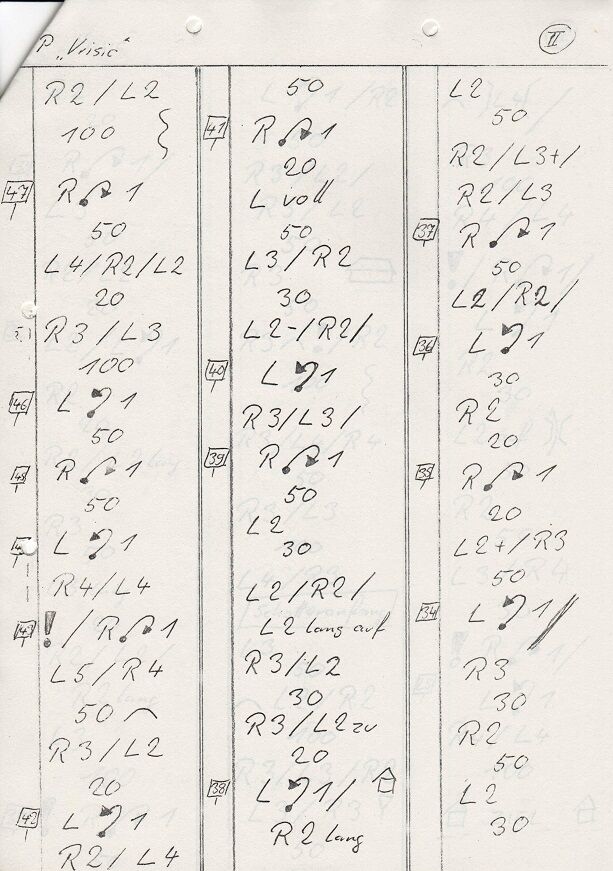 P „Vrsic“
II
R2 / L2
100 }
47 R 1
50
L4/R2/L2
20
R3 / L3
100
46 L 1
50
45 R 1
50
L 1
R4/L4
43 ! / R 1
L5 / R4
50
R3 / L2
20
42 L 1
R2/ L4
50
41 R 1
20
L voll
50
L3 / R2
30
L2-/R2/
40 L 1
R3/L3/
39 R 1
50
L2
30
L2/R2/
L2 lang auf
R3/L2
30
R3/L2 zu
20
38 L 1/
R2 lang
L2
50
R2/L3+/
R2/L3
37 R 1
50
L2/R2/
36 L 1
30
R2
20
35 R 1
20
L2+/R3
50
34 L 1//
R3
30
R2
50
L2
30